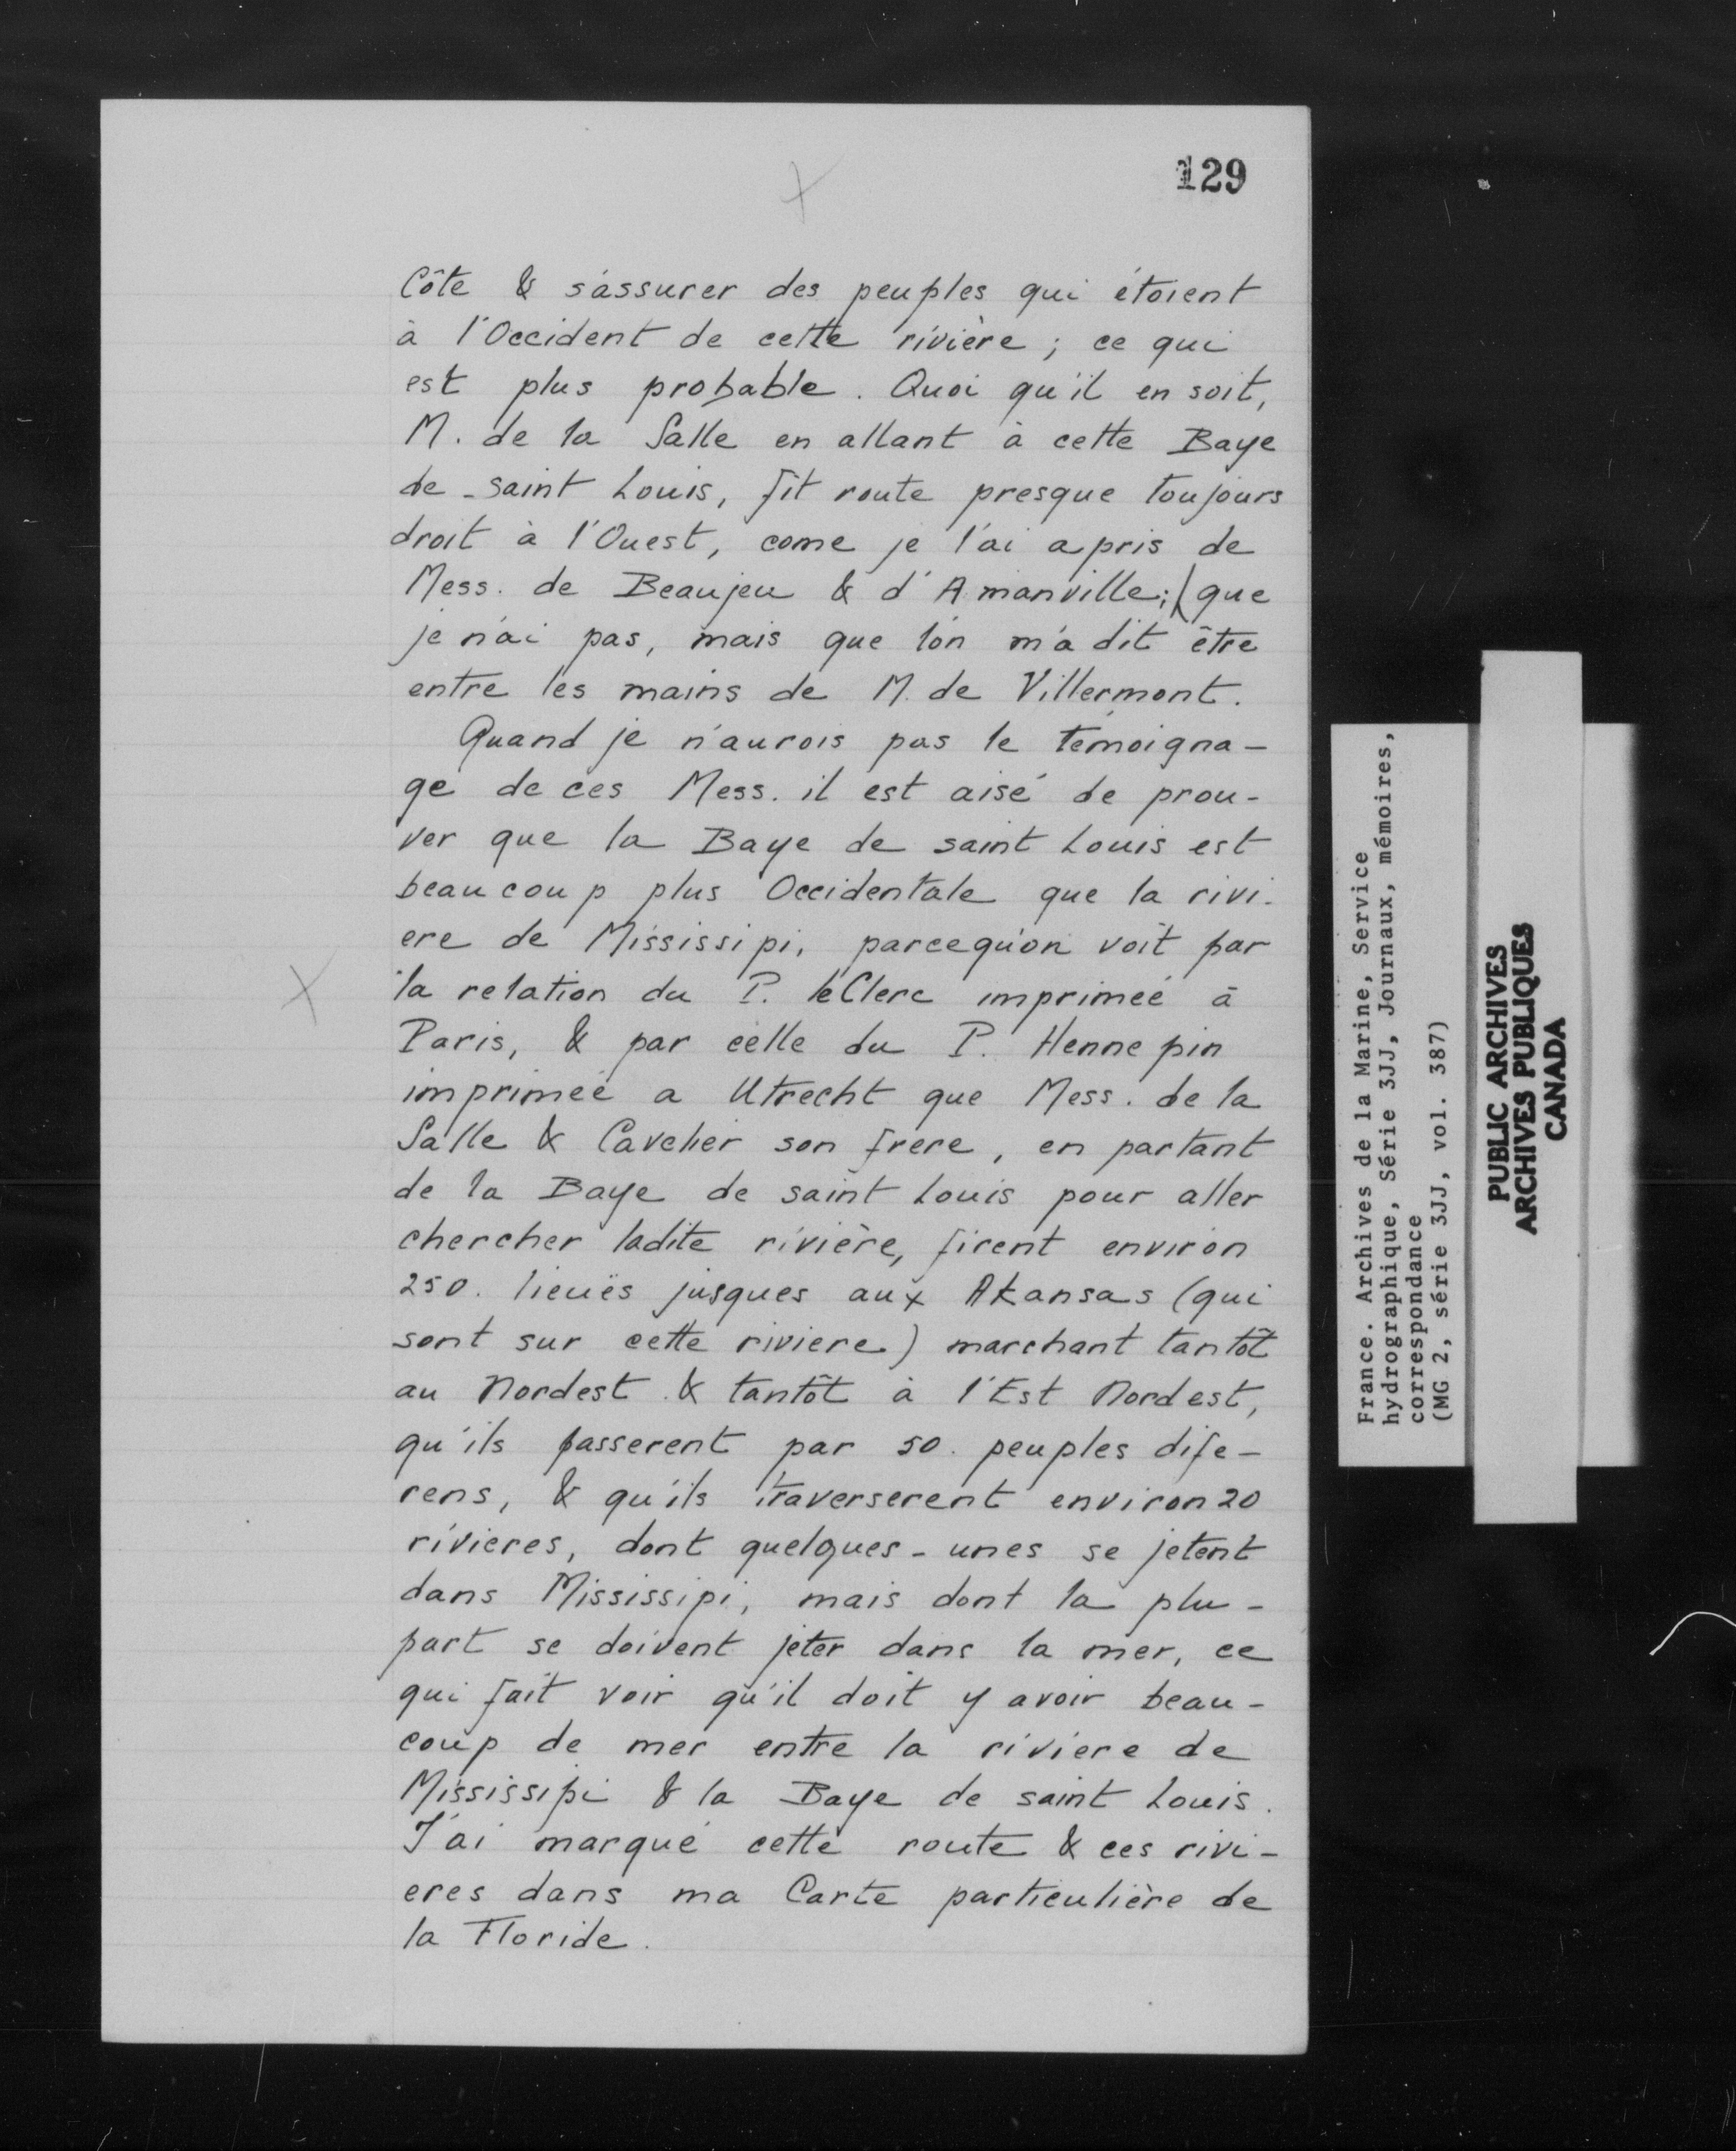 129
Côte & s'assurer des peuples qui étoient
à l'Occident de cette rivière ; ce qui
est plus probable. Quoi qu'il en soit,
M. de la Salle en allant à cette Baye
de saint Louis, fit route presque toujours
droit à l'Ouest, come je l'ai apris de
Mess. de Beaujeu & d'Amanville; (que
je n'ai pas, mais que l'on m'a dit être
entre les mains de M. de Villermont.
Quand je n'aurois pas le témoigna-
ge de ces Mess. il est aisé de prou-
ver que la Baye de saint Louis est
beaucoup plus Occidentale que la rivi-
ere de Mississipi, parcequ'on voit par
la relation du P. le Clerc impriméé à
Paris, & par celle du P. Hennepin
impriméé a Utrecht que Mess. de la
Salle & Cavelier son frere, en partant
de la Baye de saint Louis pour aller
chercher ladite rivière, firent environ
250. lieuës jusques aux Akansas (qui
sont sur cette riviere) marchant tantôt
au Nordest & tantôt à l'Est Nordest,
qu'ils passerent par 50. peuples dife-
rens, & qu'ils traverserent environ 20
rivieres, dont quelques-unes se jetent
dans Mississipi, mais dont la plu-
part se doivent jeter dans la mer, ce
qui fait voir qu'il doit y avoir beau-
coup de mer entre la riviere de
Mississipi & la Baye de saint Louis.
J'ai marqué cette route & ces rivi-
eres dans ma Carte particulière de
la Floride.
France. Archives de la Marine, Service
hydrographique, Série 3JJ, Journaux, mémoires,
correspondance
(MG 2, série 3JJ, vol. 387)
PUBLIC ARCHIVES
ARCHIVES PUBLIQUES
CANADA